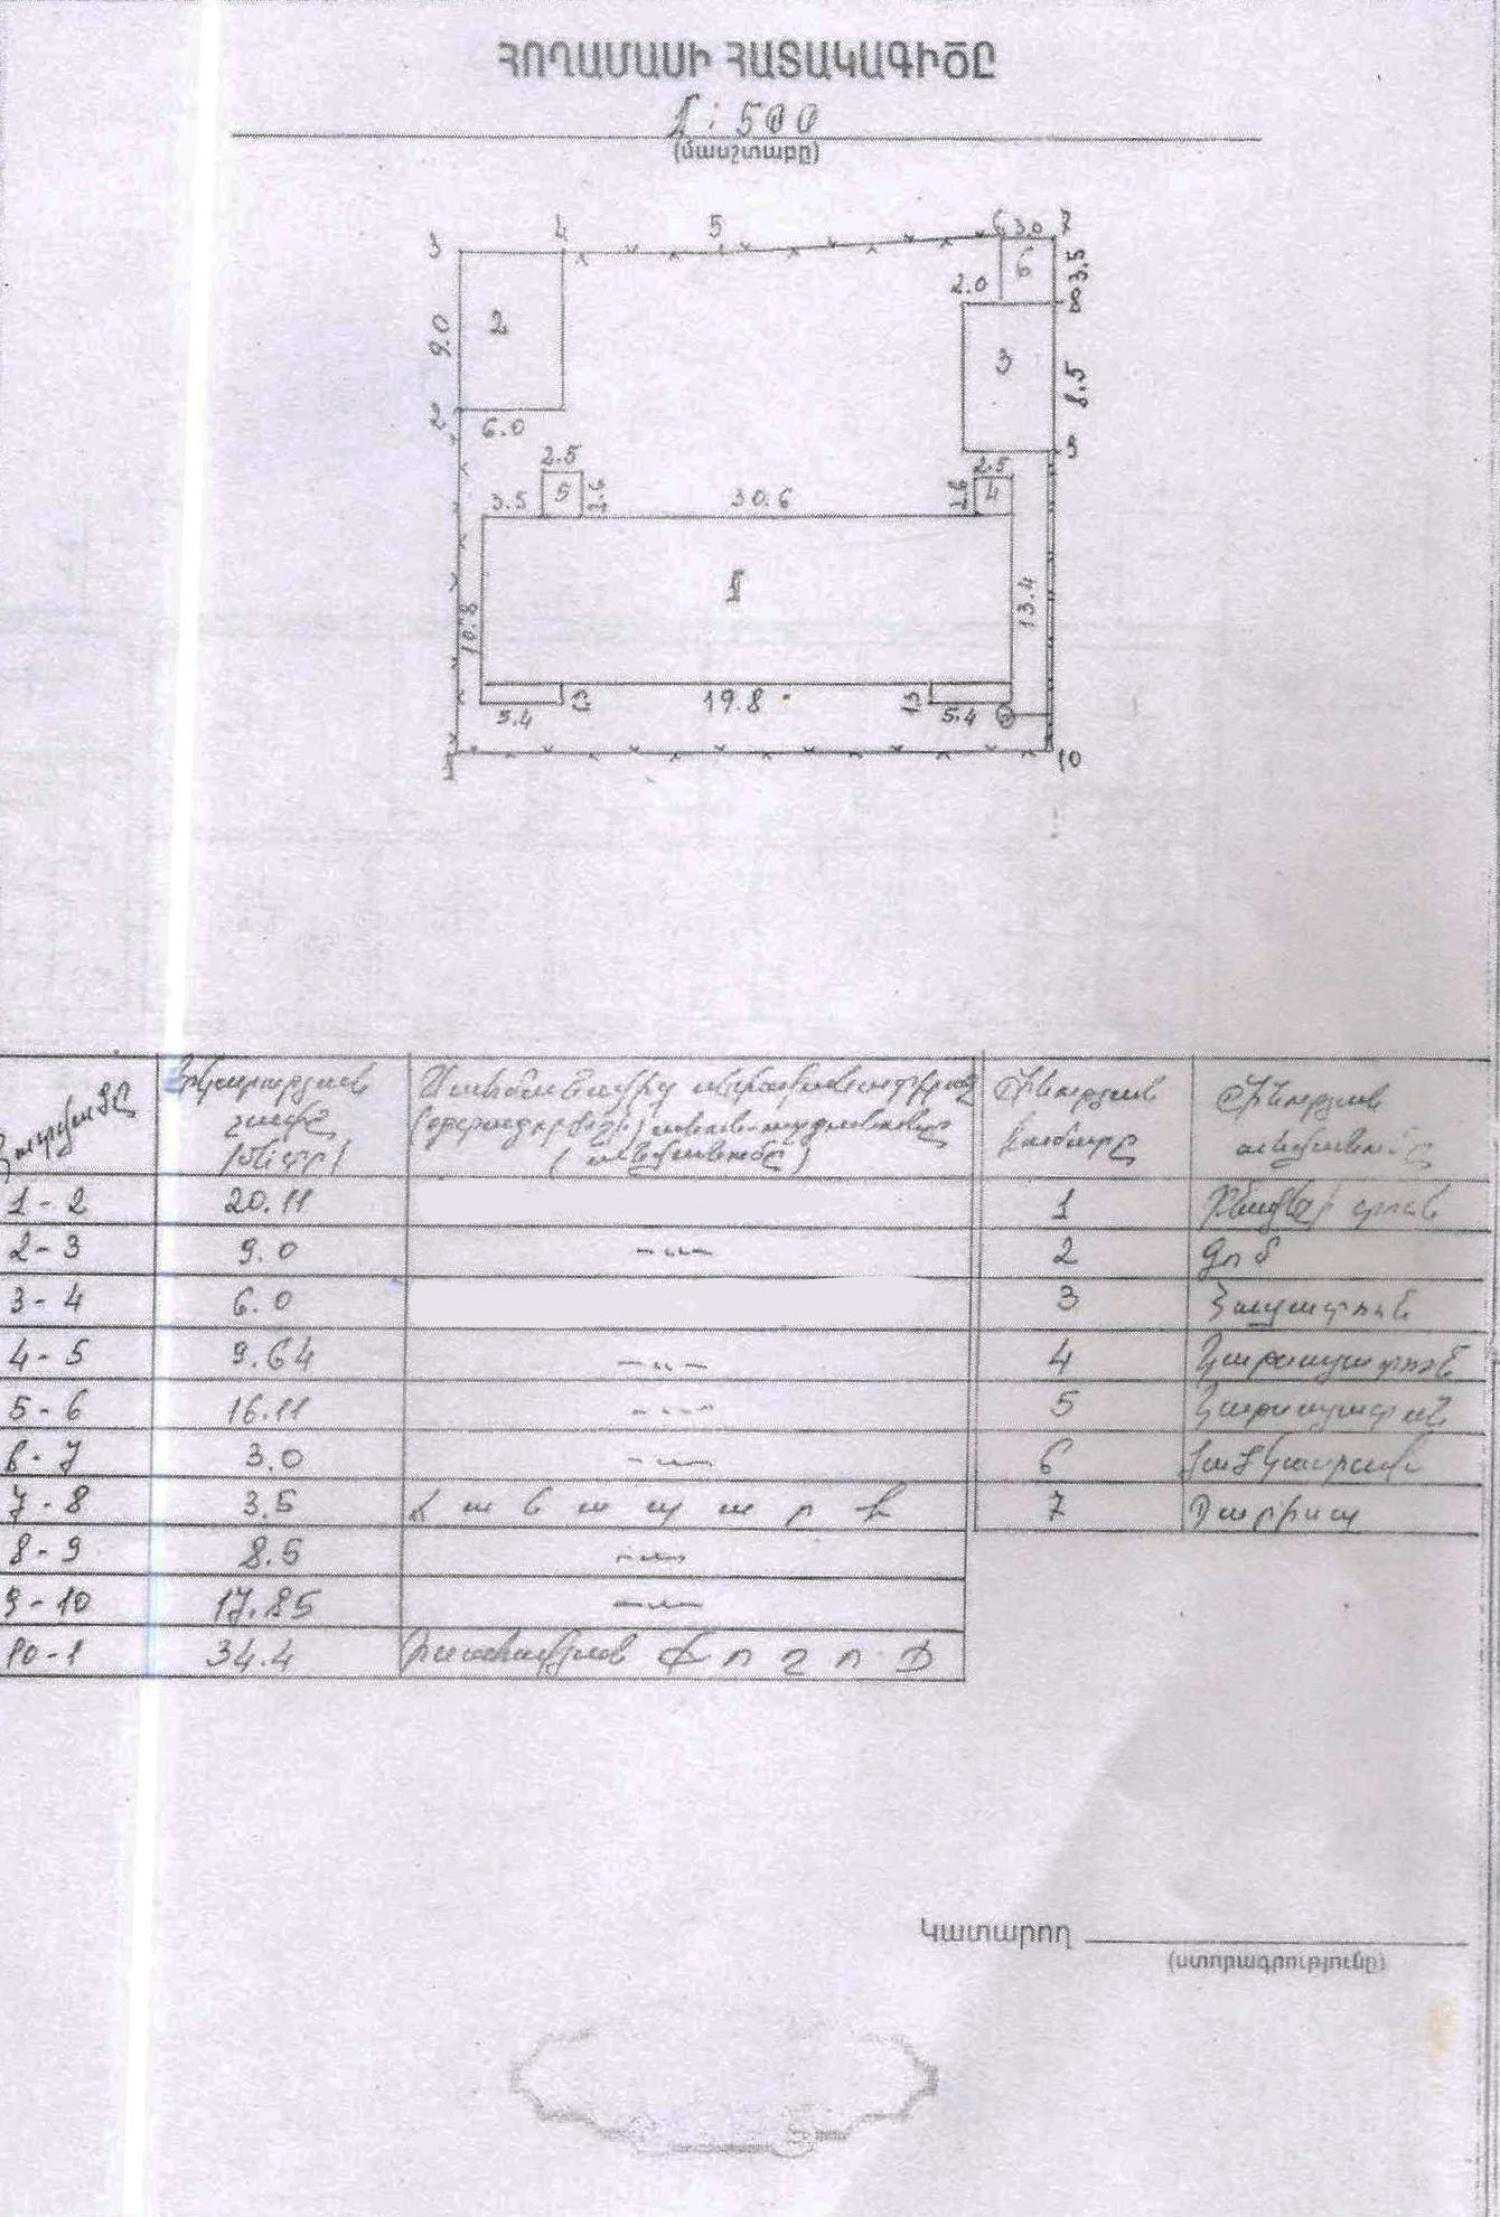 ՀՈՂԱՄԱՍԻ ՀԱՏԱԿԱԳԻԾԸ
1:500
(մասշտաբը)
3 4 5 6 3.0 7
6 3.5
2.0 8
9.0 2 3 8.5
2 6.0 9
2.5 2.5
3.5 5 30.6 4
1
10.8 13.4
19.8
5.4 5.4
1 10
Երկարության Սահմանակից Շինության Շինության
չափը
(մետր) (անվանումը) համարը անվանումը
1-2 20.11 1 Բնակելի տուն
2-3 9.0 —〃— 2 Գոմ
3-4 6.0 3 Հացատուն
4-5 9.64 —〃— 4
5-6 16.11 —〃— 5
6-7 3.0 —〃— 6
7-8 3.5 Ճանապարհ 7 Դարպաս
8-9 8.5 —〃—
9-10 17.85 —〃—
10-1 34.4 Փողոց
Կատարող
(ստորագրությունը)